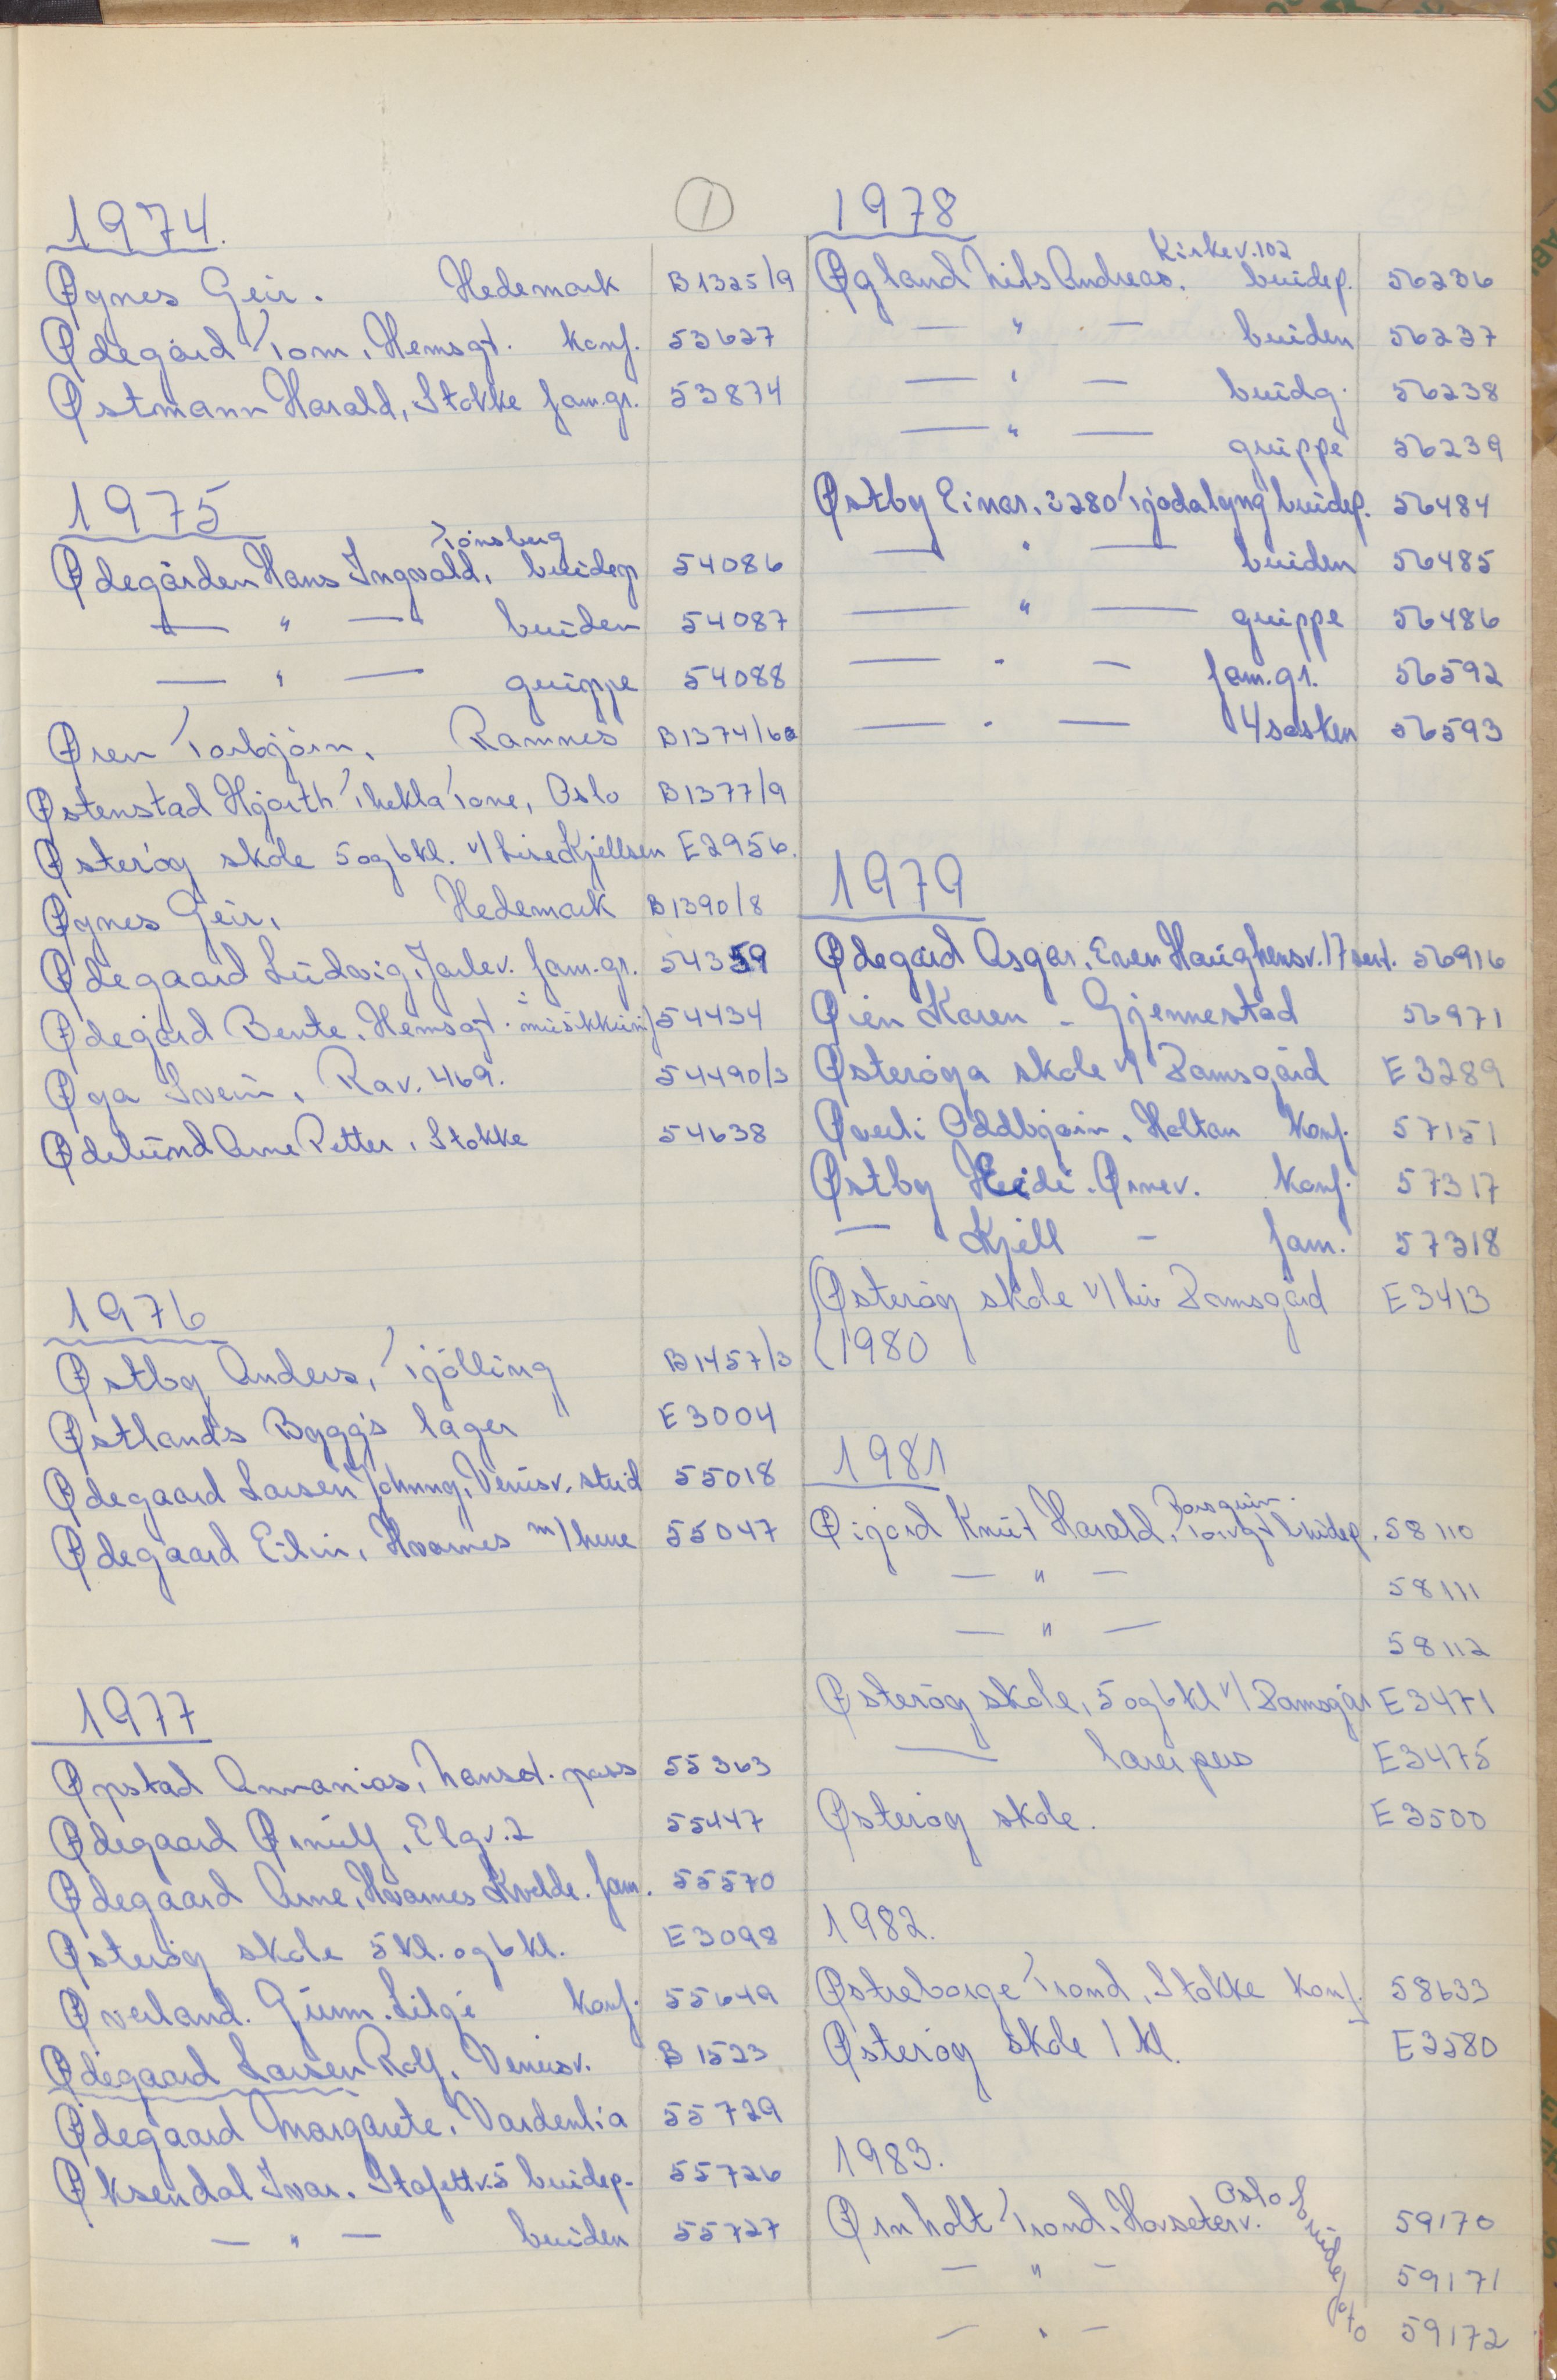 1
1974.
Øynes Geir. Hedemark B1325/9
Ødegård Tom, Hemsgt. konf. 53627
Østmann Harald, Stokke fam.gr. 53874
1975
Tönsberg
Ødegården Hans Ingvald, brudep 54086
— " — bruden 54087
— " — gruppe 54088
Øren Torbjørn, Ramnes B1374/6a
Østenstad Hjorth Thekla Tone, Oslo B1377/9
Østerøy skole 5 og 6 kl. v/ Lise Kjellsen E2956.
Øynes Geir, Hedemark B1390/8
Ødegaard Ludvig, Jarlev. fam.gr. 54359
Ødegård Bente, Hemsgt. i musikkunif 54434
Øya Svein, Rav. 469. 54490/3
Ødelund Arne Petter, Stokke 54638
1976
Østby Anders, Tjölling B1457/3
Østlands Bygg's lager E3004
Ødegaard Larsen Johnny, Venusv. stud 55018
Ødegaard Elin, Hvarnes m/ hue 55047
1977
Øpstad Annanias, Nanset. pass 55363
Ødegaard Ørnulf, Elgv. 2 55447
Ødegaard Arne, Hvarnes Kvelde. fam. 55570
Østerøy skole 5 kl. og 6 kl. E3098
Øverland. Gunn. Lilgi konf. 55649
Ødegaard Larsen Rolf, Venusv. B 1523
Ødegaard Margarete, Vardenlia 55729
Øksendal Ivar. Stafettv. 5 brudep. 55726
— " — bruden 55727
1978
Kirkev. 102
Øgland Nils Andreas. brudep. 56236
— " — bruden 56237
— " — brudg. 56238
— " — gruppe 56239
Østby Einar, 3280 Tjodalyng brudep. 56484
— " — bruden 56485
— " — gruppe 56486
— " — fam.gr. 56592
— " — 4 søsken 56593
1979
Ødegård Asgar, Even Haughensv. 17 sert. 56916
Øien Karen - Gjennestad 56971
Østerøya skole v/ Ramsgård E3289
Øverli Oddbjørn, Holtan konf. 57151
Østby Heidi. Ørnev. konf. 57317
— Kjell - fam. 57318
Østerøy skole v/ Liv Ramsgård E3413
1980
1981
Porsgrunn.
Øigard Knut Harald, Torvgt brudep. 58110
— " — 58111
— " — 58112
Østerøy skole, 5 og 6 kl v/ Ramsgår E3471
— E3475
Østerøy skole. E3500
1982.
Østreborge Trond, Stokke konf. 58633
Østerøy skole 1 kl. E3580
1983.
Oslo
Ørnholt Trond, Hovseterv. brudefoto 59170
— " — 59171
— " — 59172